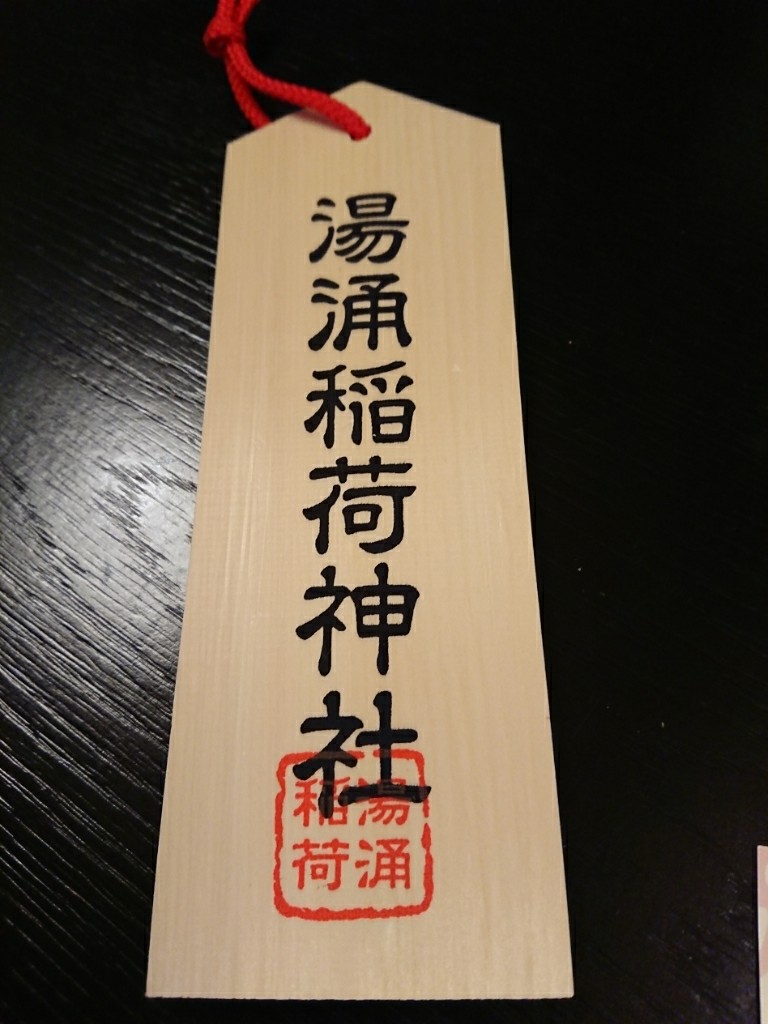 湯涌稲荷神社
湯涌
稲荷